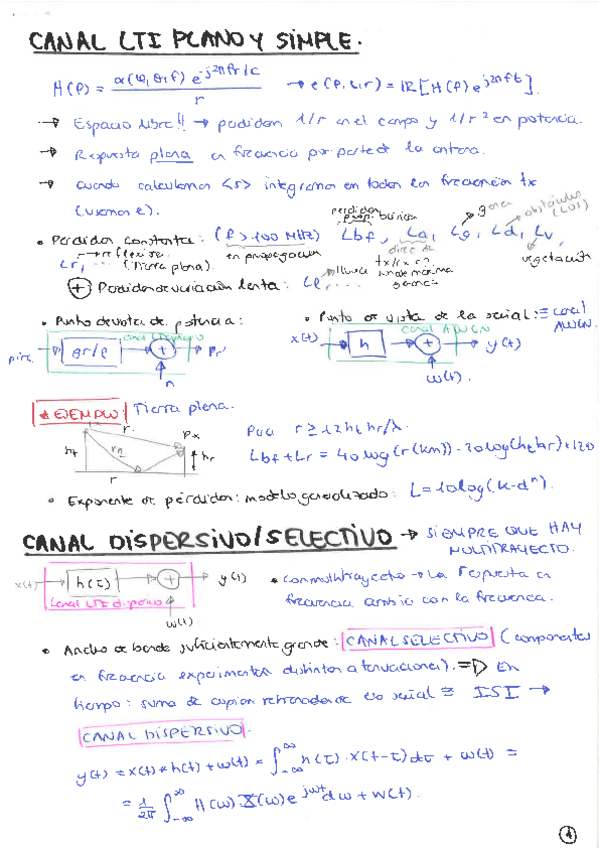 CANAL LTI PLANO Y SIMPLE.
H(f) = α(φ,θ,f) e^{-j2πfr/c} / r → e(f,t,r) = IR[H(f) e^{j2πft}].
→ Espacio libre!! → perdidas 1/r en el campo y 1/r² en potencia.
→ Respuesta plana en frecuencia por parte de la antena.
→ cuando calculamos <s> integramos en todas las frecuencias tx
(usamos e).
• Pérdidas constantes: (f > 100 MHz) Lbf, La, Lg, Ld, Lv
perdidas prop. básica
gases
obstáculos
en propagación
vegetación
Lr, ... reflexión (Tierra plana).
tx/rx
máxima
⊕ Perdidas de variación lenta: Le ... lluvia
• Punto de vista de potencia: • Punto de vista de la señal: ≡ canal AWGN.
canal AWGN
pire gr/l + pr
n
x(t) h + y(t)
w(t).
* EJEMPLO: Tierra plana.
r
ht
r
hr
Para r ≥ 12hthr/λ.
Lbf + Lr = 40log(r(km)) - 20log(hthr) + 120
• Exponente de pérdidas: modelo generalizado: L = 10log(k·dⁿ).
CANAL DISPERSIVO/SELECTIVO → SIEMPRE QUE HAY
MULTITRAYECTO.
x(t) h(τ) + y(t)
Canal LTI dispersivo
w(t)
• con multitrayecto → la respuesta en
frecuencia cambia con la frecuencia.
• Ancho de banda suficientemente grande: CANAL SELECTIVO (componentes
en frecuencia experimentan distintas atenuaciones). ⇒ En
tiempo: suma de copias retrasadas de esa señal ≡ ISI →
CANAL DISPERSIVO.
y(t) = x(t) * h(t) + w(t) = ∫_{-∞}^{∞} h(τ)·x(t-τ)dτ + w(t) =
= 1/2π ∫_{-∞}^{∞} H(ω) X(ω) e^{jωt} dω + w(t).
1